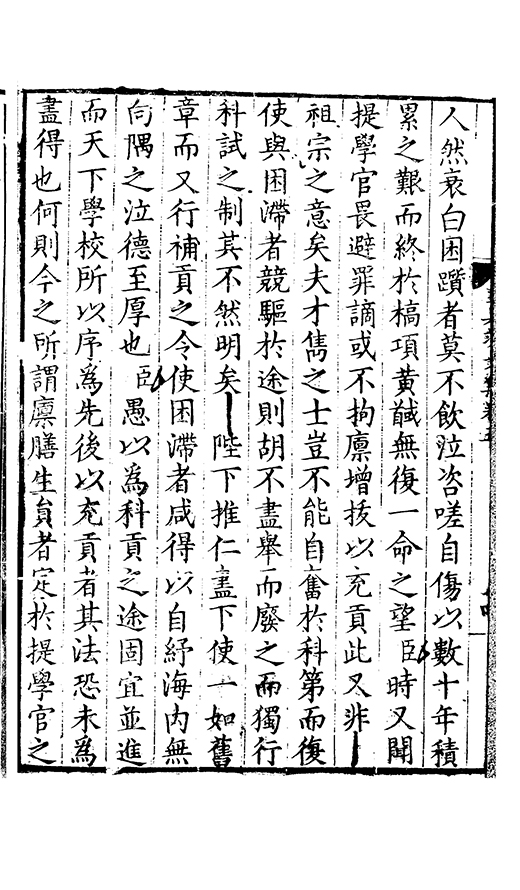 人然衰白困躓者莫不飲泣咨嗟自傷以數十年積
累之艱而終於槁項黃馘無復一命之望臣時又聞
提學官畏避罪謫或不拘廩增拔以充貢此又非
祖宗之意矣夫才雋之士豈不能自奮於科第而復
使與困滯者競驅於途則胡不盡舉而廢之而獨行
科試之制其不然明矣陛下推仁盡下使一如舊
章而又行補貢之令使困滯者咸得以自紓海內無
向隅之泣德至厚也臣愚以為科貢之途固宜並進
而天下學校所以序為先後以充貢者其法恐未為
盡得也何則今之所謂廩膳生員者定於提學官之